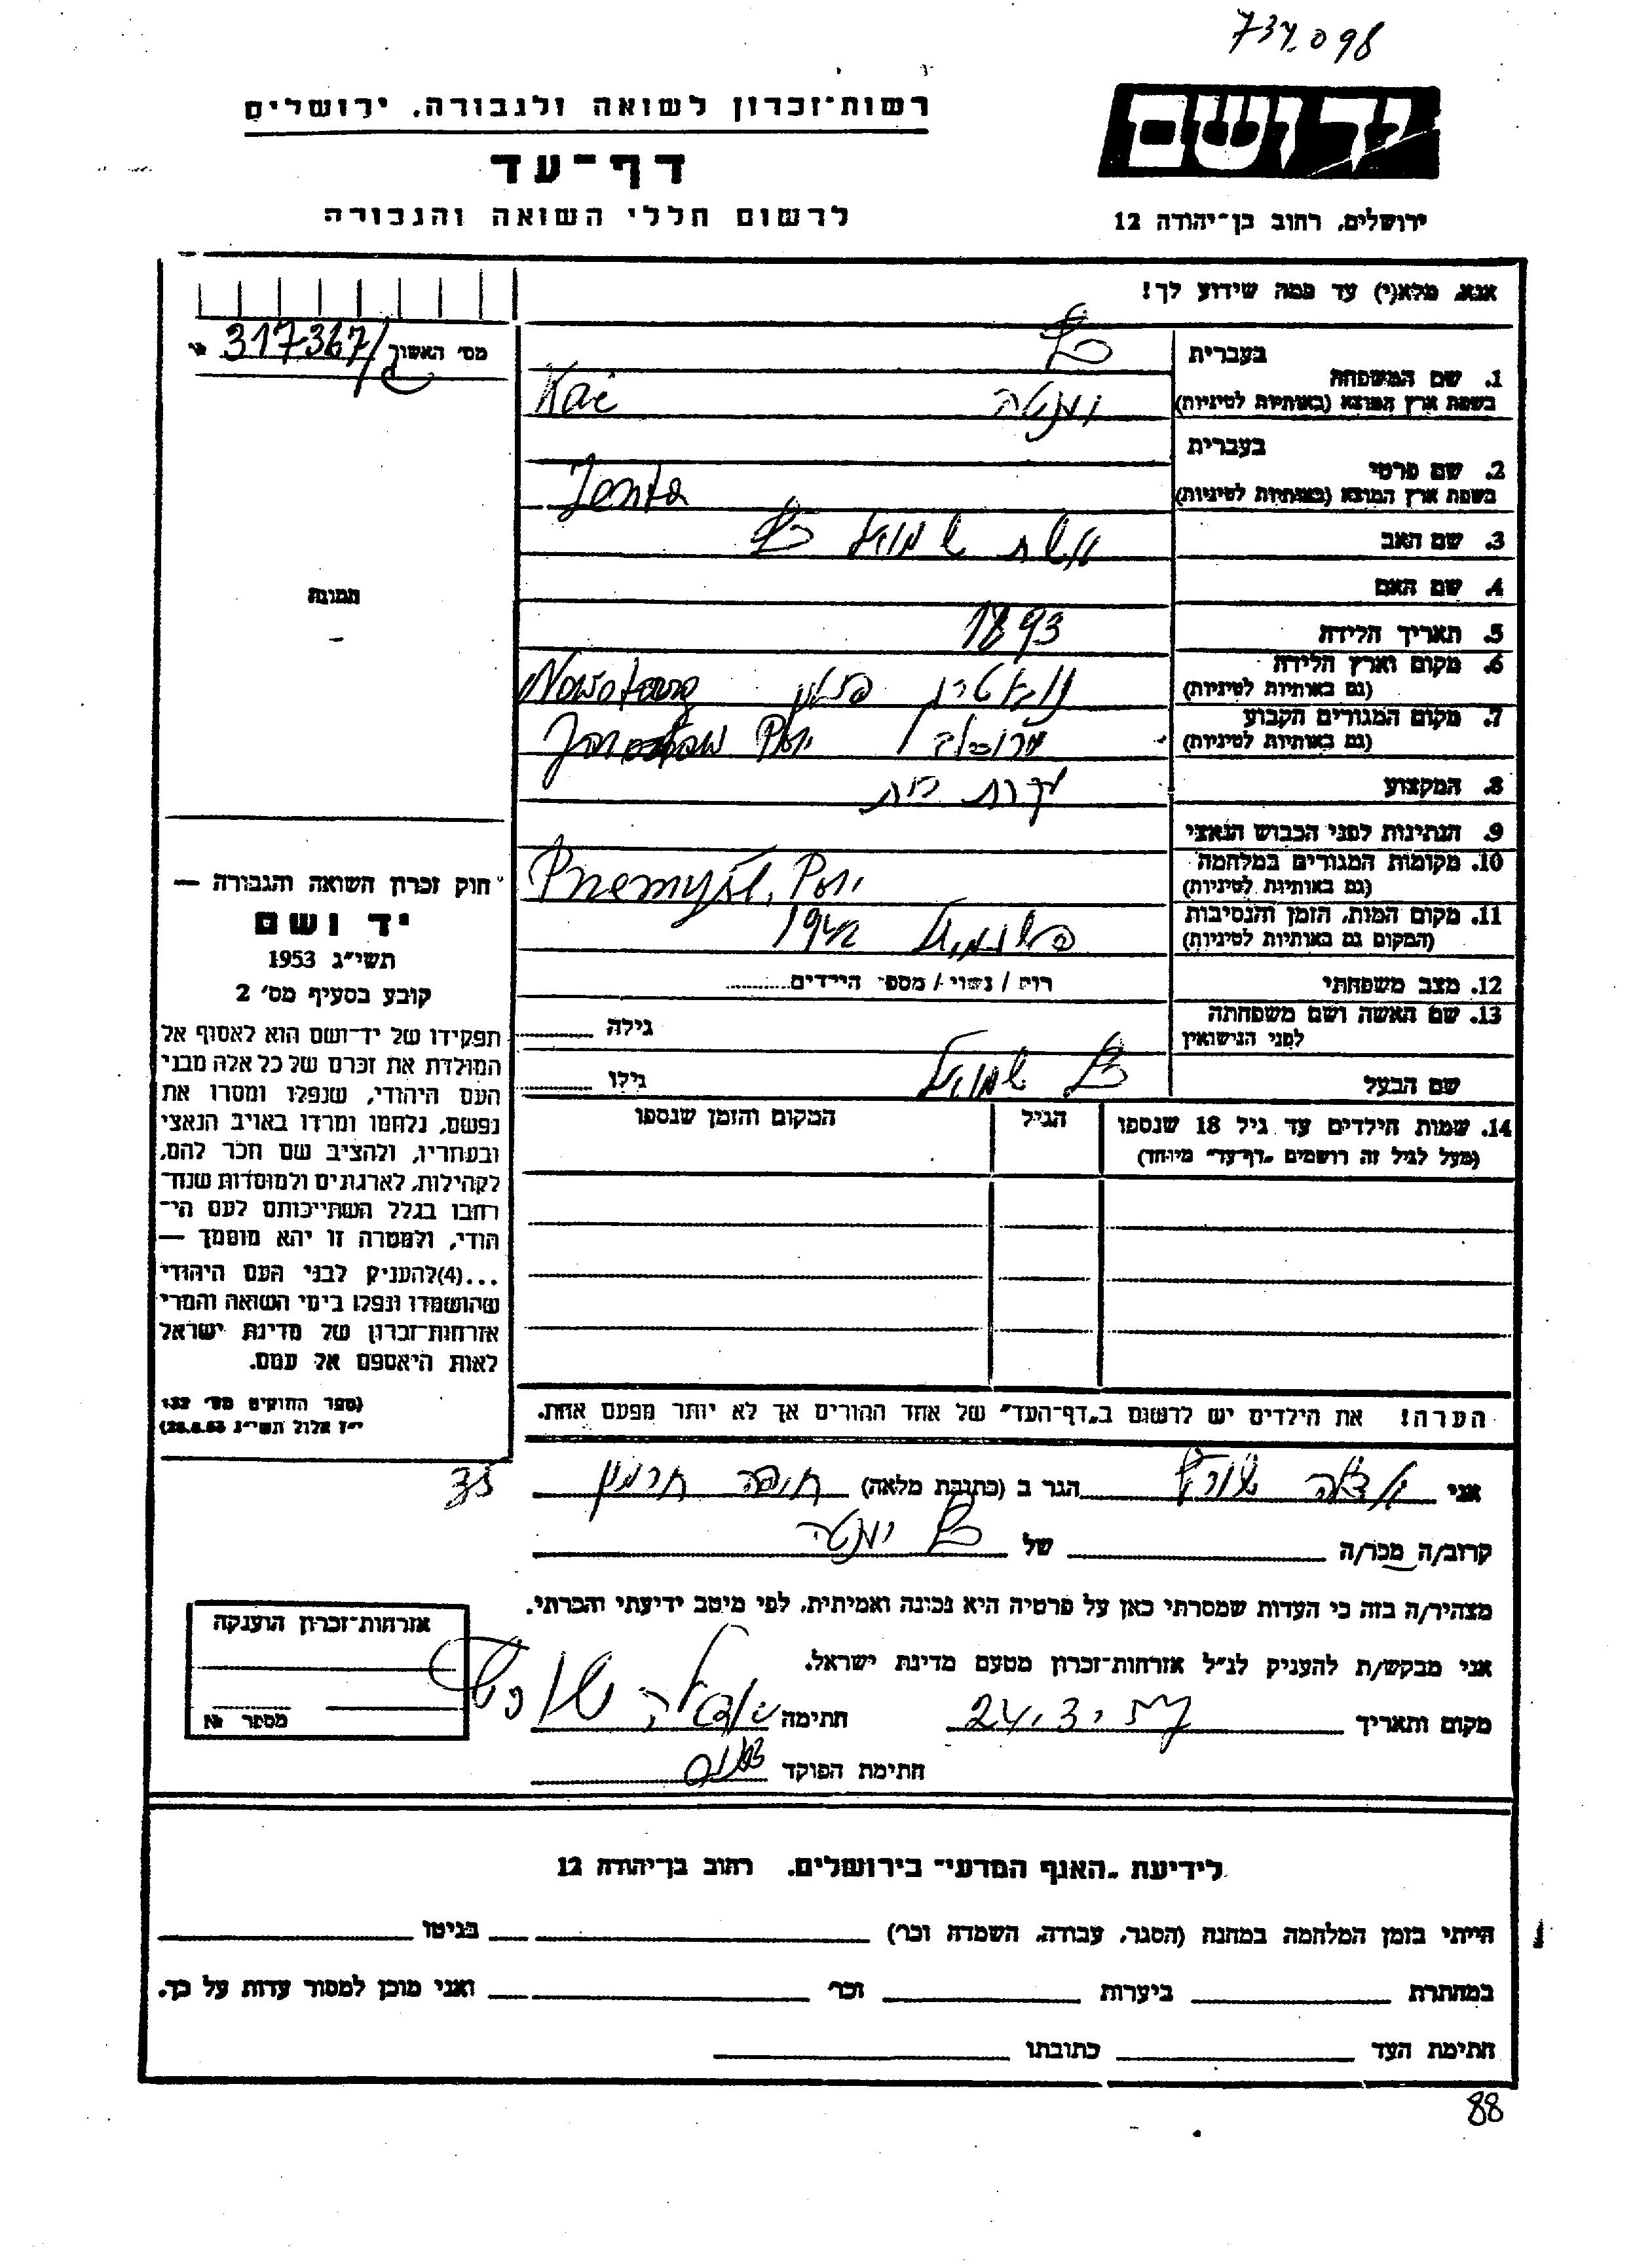 737098
יד ושם
רשות־זכרון לשואה ולגבורה, ירושלים
דף־עד
לרשום חללי השואה והגבורה
ירושלים, רחוב בן־יהודה 12
אנא, מלא(י) עד כמה שידוע לך!
מס׳ האשוך 317367
בעברית כץ
1. שם המשפחה
בשפת ארץ המוצא (באותיות לטיניות) ינטה Kac
בעברית
2. שם פרטי
בשפת ארץ המוצא (באותיות לטיניות) Jenta
3. שם האב אשת שמואל כץ
4. שם האם
תמונה
5. תאריך הלידה 1893
6. מקום וארץ הלידה
(גם באותיות לטיניות) פולין Nowotarg
7. מקום המגורים הקבוע
(גם באותיות לטיניות) ירוסלב Jarosław
8. המקצוע עקרת בית
9. הנתינות לפני הכבוש הנאצי
10. מקומות המגורים במלחמה
(גם באותיות לטיניות)
11. מקום המות, הזמן והנסיבות
(המקום גם באותיות לטיניות) 1942
12. מצב משפחתי רוק / נשוי / מספר הילדים
13. שם האשה ושם משפחתה
לפני הנישואין גילה
שם הבעל כץ שמואל גילו
14. שמות הילדים עד גיל 18 שנספו
(מעל לגיל זה רושמים „דף־עד״ מיוחד)
הגיל
המקום והזמן שנספו
חוק זכרון השואה והגבורה —
יד ושם
תשי״ג 1953
קובע בסעיף מס׳ 2
תפקידו של יד־ושם הוא לאסוף אל
המולדת את זכרם של כל אלה מבני
העם היהודי, שנפלו ומסרו את
נפשם, נלחמו ומרדו באויב הנאצי
ובעוזריו, ולהציב שם וזכר להם,
לקהילות, לארגונים ולמוסדות שנח־
רבו בגלל השתייכותם לעם הי־
הודי, ולמטרה זו יהא מוסמך —
...(4)להעניק לבני העם היהודי
שהושמדו ונפלו בימי השואה והמרי
אזרחות־זכרון של מדינת ישראל
לאות היאספם אל עמם.
(ספר החוקים מס׳ 132
י״ז אלול תשי״ג 28.8.53)
הערה! את הילדים יש לרשום ב„דף־העד״ של אחד ההורים אך לא יותר מפעם אחת.
אני הגר ב (כתובת מלאה) חיפה 35
קרוב/ה מכר/ה של כץ ינטה
מצהיר/ה בזה כי העדות שמסרתי כאן על פרטיה היא נכונה ואמיתית, לפי מיטב ידיעתי והכרתי.
אני מבקש/ת להעניק לנ״ל אזרחות־זכרון מטעם מדינת ישראל.
מקום ותאריך 24.3.57 חתימה
חתימת הפוקד
אזרחות־זכרון הוענקה
מספר №
לידיעת „האגף המדעי״ בירושלים, רחוב בן־יהודה 12
הייתי בזמן המלחמה במחנה (הסגר, עבודה, השמדה וכו׳) בגיטו
במחתרת ביערות וכו׳ ואני מוכן למסור עדות על כך.
חתימת העד כתובתו
88